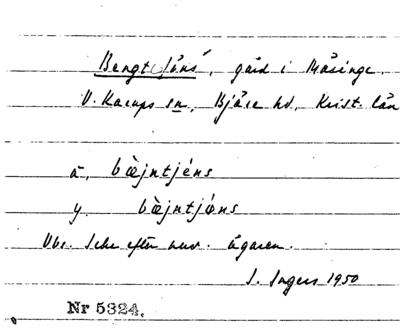 Bengt Jöns, gård i Måsinge.
V. Karups sn, Bjäre hd, Krist. län
ä. bœjntjéns
y. bœjntjøns
Obs. Icke efter nuv. ägaren.
I. Ingers 1950
Nr 5324.